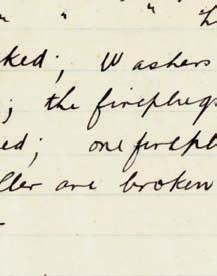 " "
ked; Washers
; the fireplugs
ed; one firepl
ller are broken